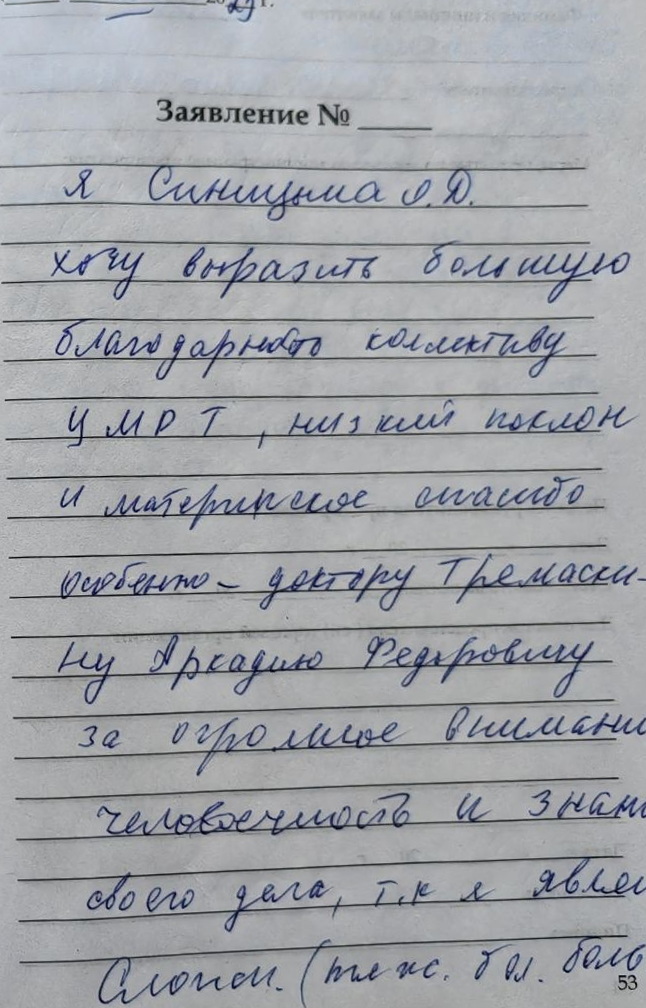 Заявление №
Я Синицына О.Д.
хочу выразить большую
благодарность коллективу
ЦМРТ, низкий поклон
и материнское спасибо
особенно – доктору Тремаски-
ну Аркадию Федоровичу
за огромное внимани
человечность и знан
своего дела, т.к я являю
(тяжс. бол. боль
53